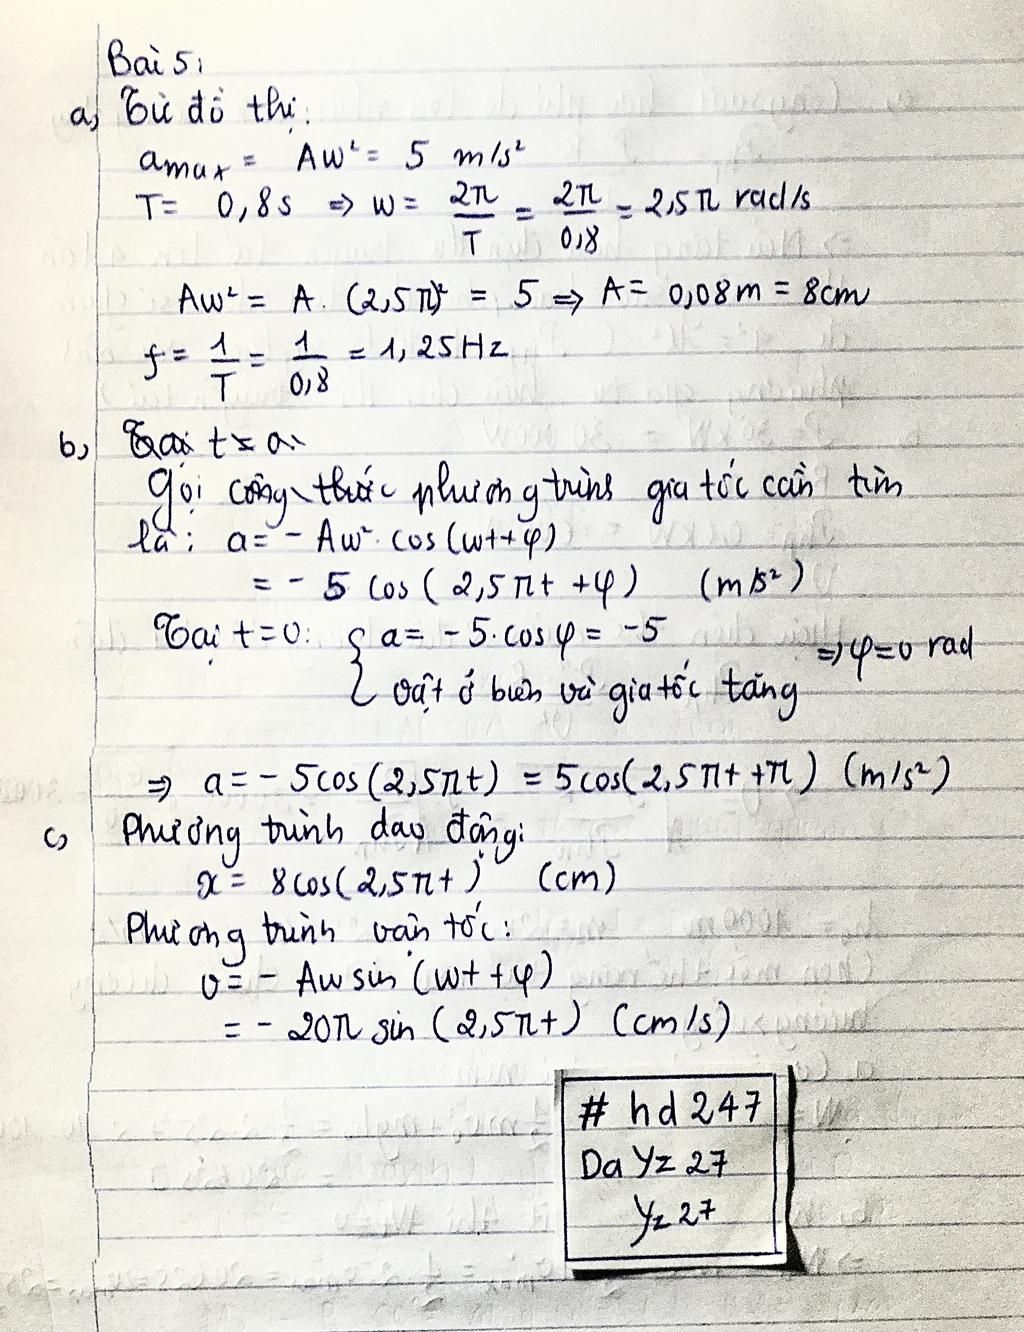 Bài 5:
a, Từ đồ thị:
amax = Aω² = 5 m/s²
T = 0,8s ⇒ ω = 2π/T = 2π/0,8 = 2,5π rad/s
Aω² = A. (2,5π)² = 5 ⇒ A = 0,08m = 8cm
f = 1/T = 1/0,8 = 1,25Hz
b,
Gọi công thức phương trình gia tốc cần tìm
là: a = - Aω². cos(ωt+φ)
= - 5 cos(2,5πt +φ) (m/s²)
Tại t=0: { a = -5.cosφ = -5
vật ở biên và gia tốc tăng ⇒ φ=0 rad
⇒ a = - 5cos(2,5πt) = 5cos(2,5πt +π) (m/s²)
c, Phương trình dao động:
x = 8cos(2,5πt) (cm)
Phương trình vận tốc:
v = - Aωsin (ωt +φ)
= - 20π sin (2,5πt) (cm/s)
# hd 247
Da Yz 27
Yz 27